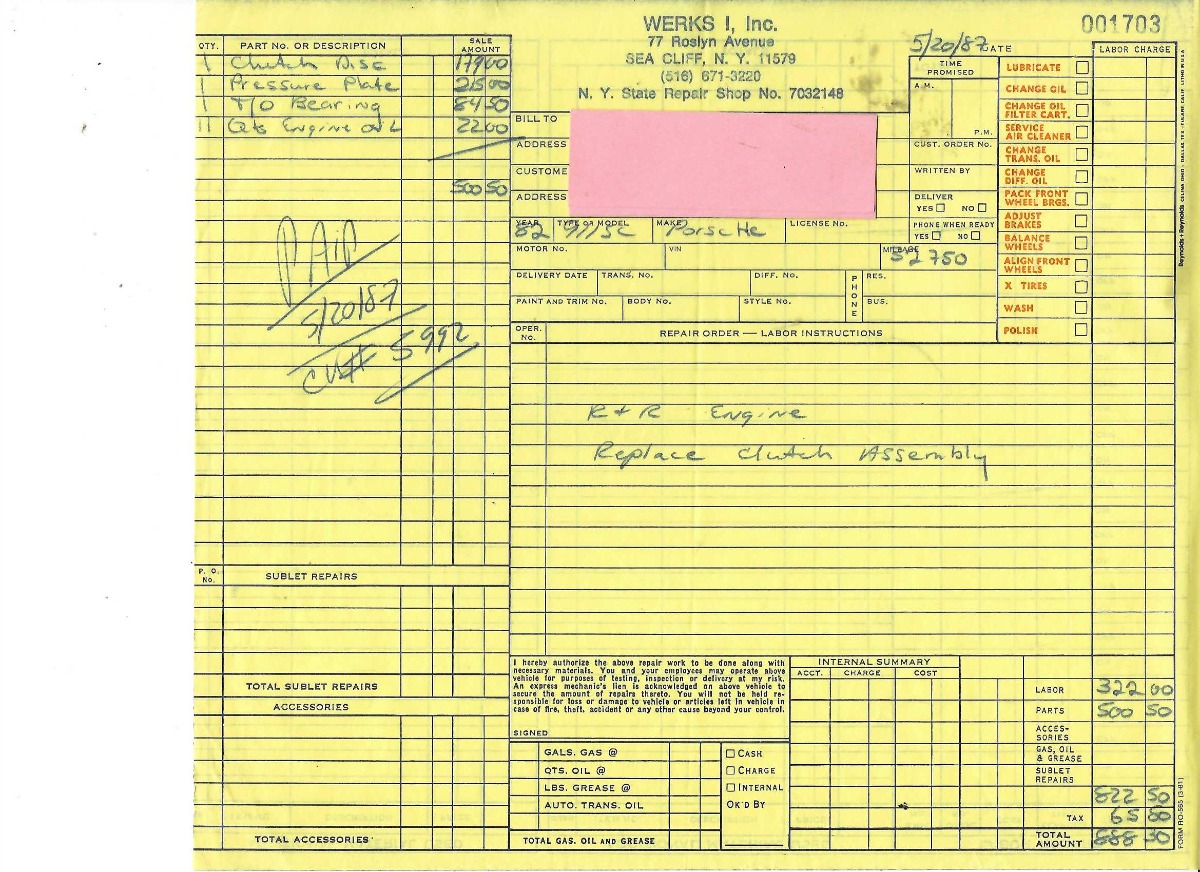 WERKS I, Inc.
77 Roslyn Avenue
SEA CLIFF, N. Y. 11579
(516) 671-3220
N. Y. State Repair Shop No. 7032148
001703
5/20/87 DATE
QTY. PART No. OR DESCRIPTION SALE AMOUNT
1 Clutch Disc 179 00
1 Pressure Plate 215 00
1 T/O Bearing 84 50
11 Qts Engine oil 22 00
500 50
PAID
5/20/87
CK# 5992
P. O. No. SUBLET REPAIRS
TOTAL SUBLET REPAIRS
ACCESSORIES
TOTAL ACCESSORIES
BILL TO
ADDRESS
CUSTOME
ADDRESS
YEAR TYPE OR MODEL MAKE LICENSE No.
82 911SC Porsche
MOTOR No. VIN MILEAGE
52750
DELIVERY DATE TRANS. No. DIFF. No. PHONE RES.
PAINT AND TRIM No. BODY No. STYLE No. BUS.
TIME PROMISED
A.M.
P.M.
CUST. ORDER No.
WRITTEN BY
DELIVER
YES NO
PHONE WHEN READY
YES NO
LABOR CHARGE
LUBRICATE
CHANGE OIL
CHANGE OIL FILTER CART.
SERVICE AIR CLEANER
CHANGE TRANS. OIL
CHANGE DIFF. OIL
PACK FRONT WHEEL BRGS.
ADJUST BRAKES
BALANCE WHEELS
ALIGN FRONT WHEELS
X TIRES
WASH
POLISH
OPER. No. REPAIR ORDER — LABOR INSTRUCTIONS
R+R Engine
Replace Clutch Assembly
I hereby authorize the above repair work to be done along with
necessary materials. You and your employees may operate above
vehicle for purposes of testing, inspection or delivery at my risk.
An express mechanic's lien is acknowledged on above vehicle to
secure the amount of repairs thereto. You will not be held re-
sponsible for loss or damage to vehicle or articles left in vehicle in
case of fire, theft, accident or any other cause beyond your control.
SIGNED
GALS. GAS @
QTS. OIL @
LBS. GREASE @
AUTO. TRANS. OIL
TOTAL GAS. OIL AND GREASE
CASH
CHARGE
INTERNAL
OK'D BY
INTERNAL SUMMARY
ACCT. CHARGE COST
LABOR 322 00
PARTS 500 50
ACCES-
SORIES
GAS, OIL
& GREASE
SUBLET
REPAIRS
822 50
TAX 65 80
TOTAL AMOUNT 888 30
Reynolds + Reynolds
FORM RO-565 (3-81)